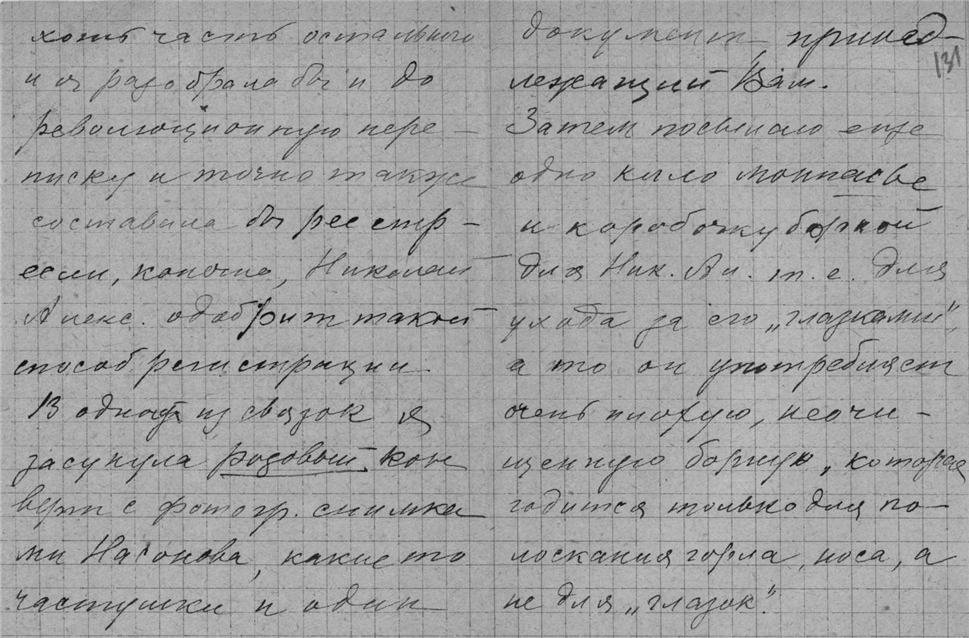 хоть часть остального
и я разобрала бы и до
революционную пере-
писку и точно также
составила бы реестр -
если, конечно, Николай
Алекс. одобрит такой
способ регистрации.
В одной из связок я
засунула розовый кон
верт с фотогр. снимка
ми Насонова, какие то
частушки и один
документ принад-
131
лежащий Вам.
Затем посылаю еще
одно кило монпасье
и коробочку борной
для Ник. Ал. т.е. для
ухода за его „глазками",
а то он употребляет
очень плохую, неочи-
щенную борную, которая
годится только для по-
лоскания горла, носа, а
не для „глазок".